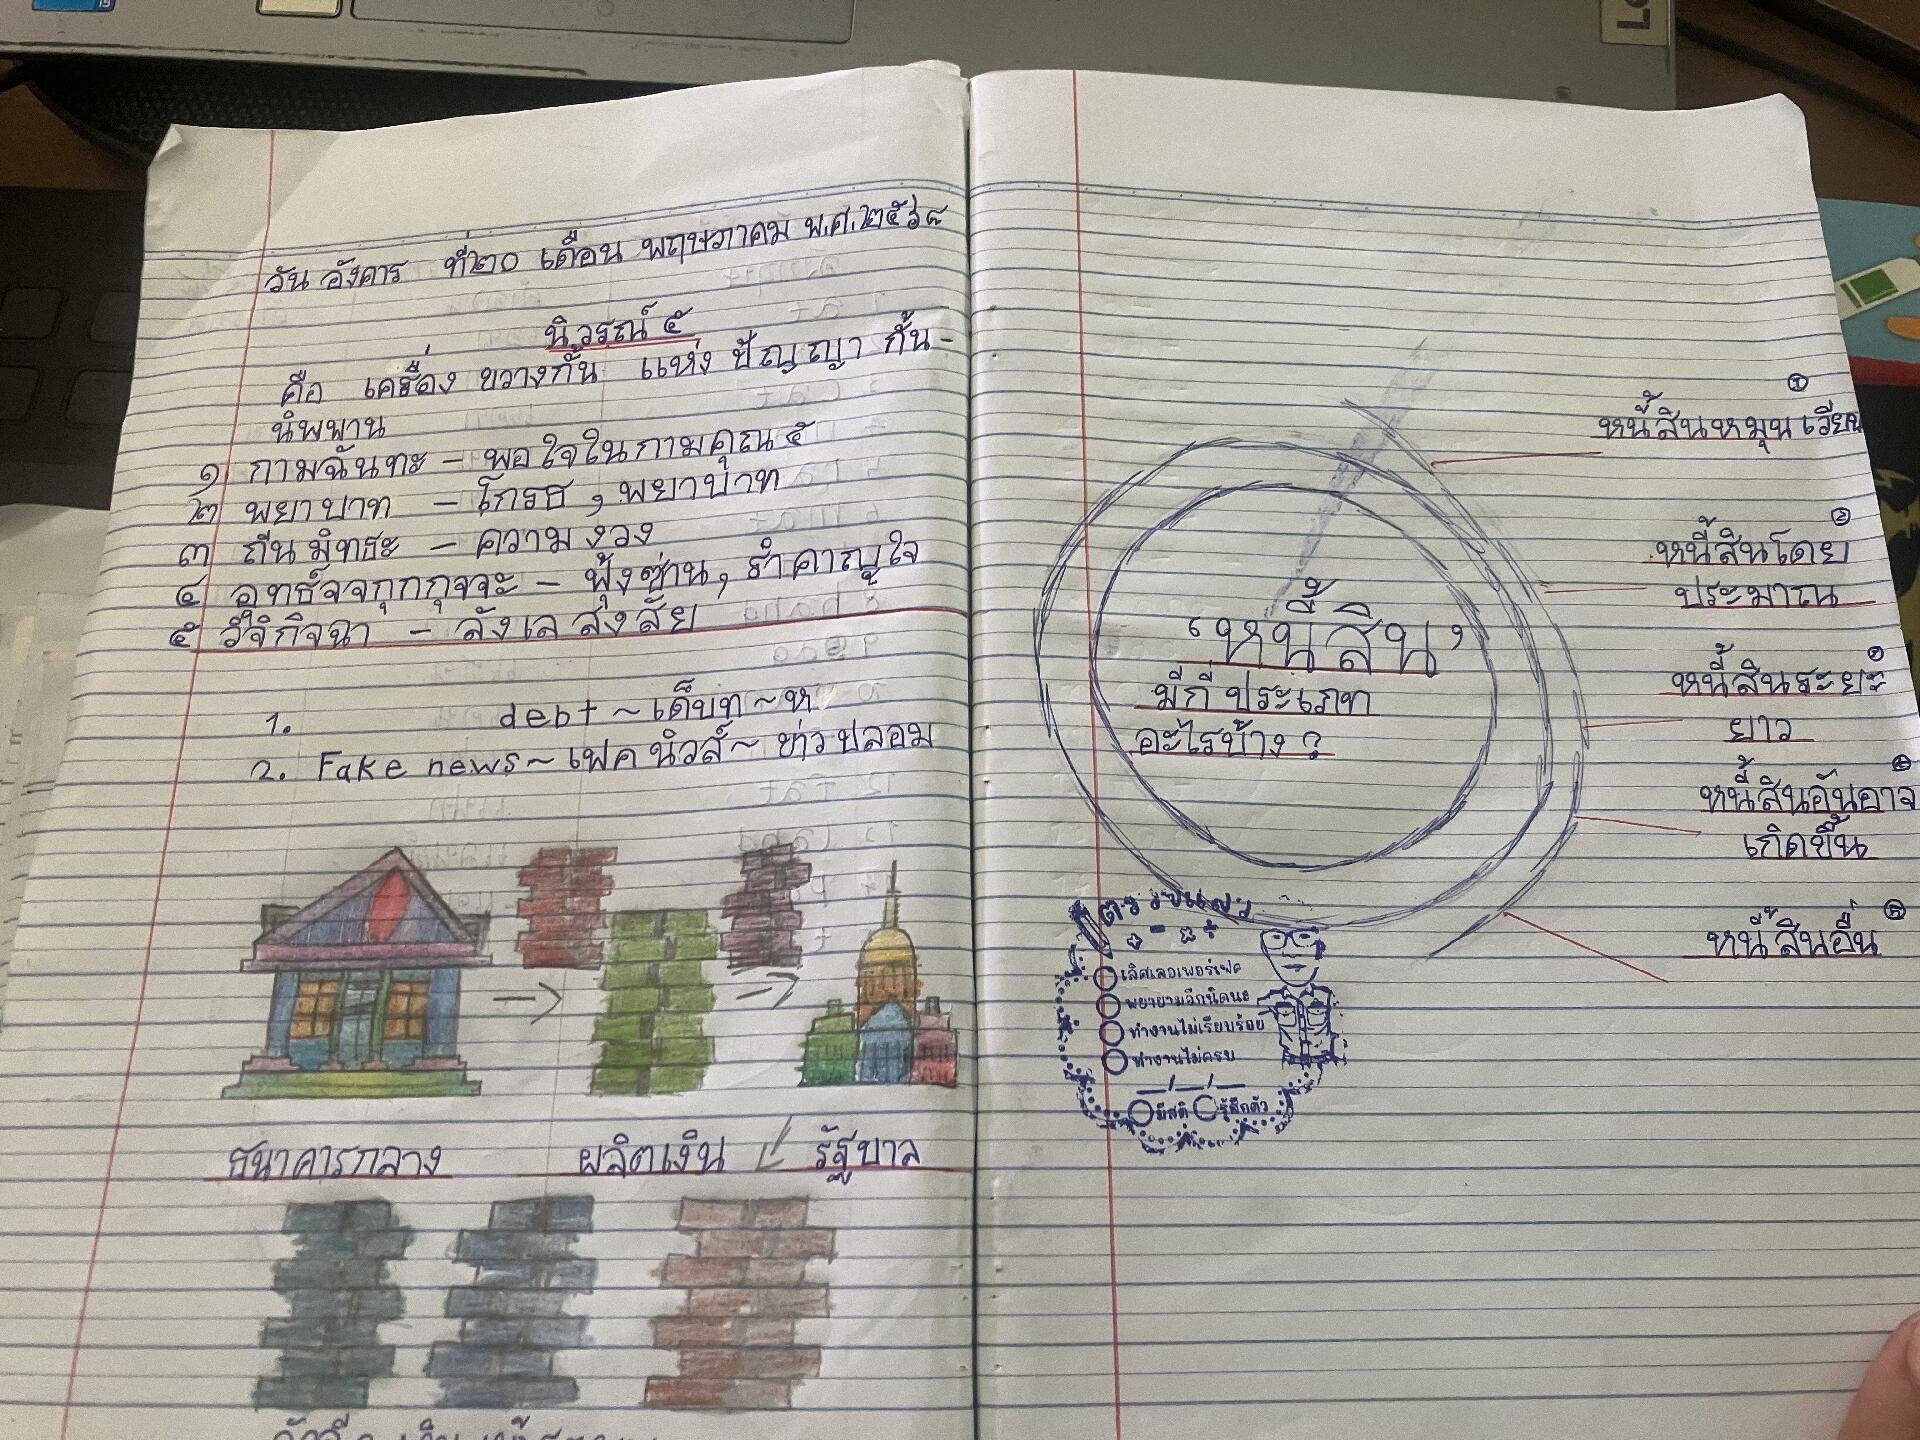 วัน อังคาร ที่๒๐ เดือน พฤษภาคม พ.ศ.๒๕๖๘
นิวรณ์ ๕
คือ เครื่อง ขวางกั้น แห่ง ปัญญา กั้น-
นิพพาน
๑ กามฉันทะ - พอใจในกามคุณ ๕
๒ พยาบาท - โกรธ , พยาบาท
๓ ถีนมิทธะ - ความง่วง
๔ อุทธัจจกุกกุจจะ - ฟุ้งซ่าน, รำคาญใจ
๕ วิจิกิจฉา - ลังเล สงสัย
1. debt ~ เด็บท ~ ห
2. Fake news ~ เฟค นิวส์ ~ ข่าวปลอม
ธนาคารกลาง ผลิตเงิน รัฐบาล
‘หนี้สิน’
มีกี่ประเภท
อะไรบ้าง ?
๑
หนี้สินหมุนเวียน
๒
หนี้สินโดย
ประมาณ
หนี้สินระยะ
ยาว
๔
หนี้สินอันอาจ
เกิดขึ้น
๕
หนี้สินอื่น
ตรวจแล้ว
+ - × ÷
เลิศเลอเพอร์เฟค
พยายามอีกนิดนะ
ทำงานไม่เรียบร้อย
ทำงานไม่ครบ
__/__/__
มีสติ รู้สึกตัว